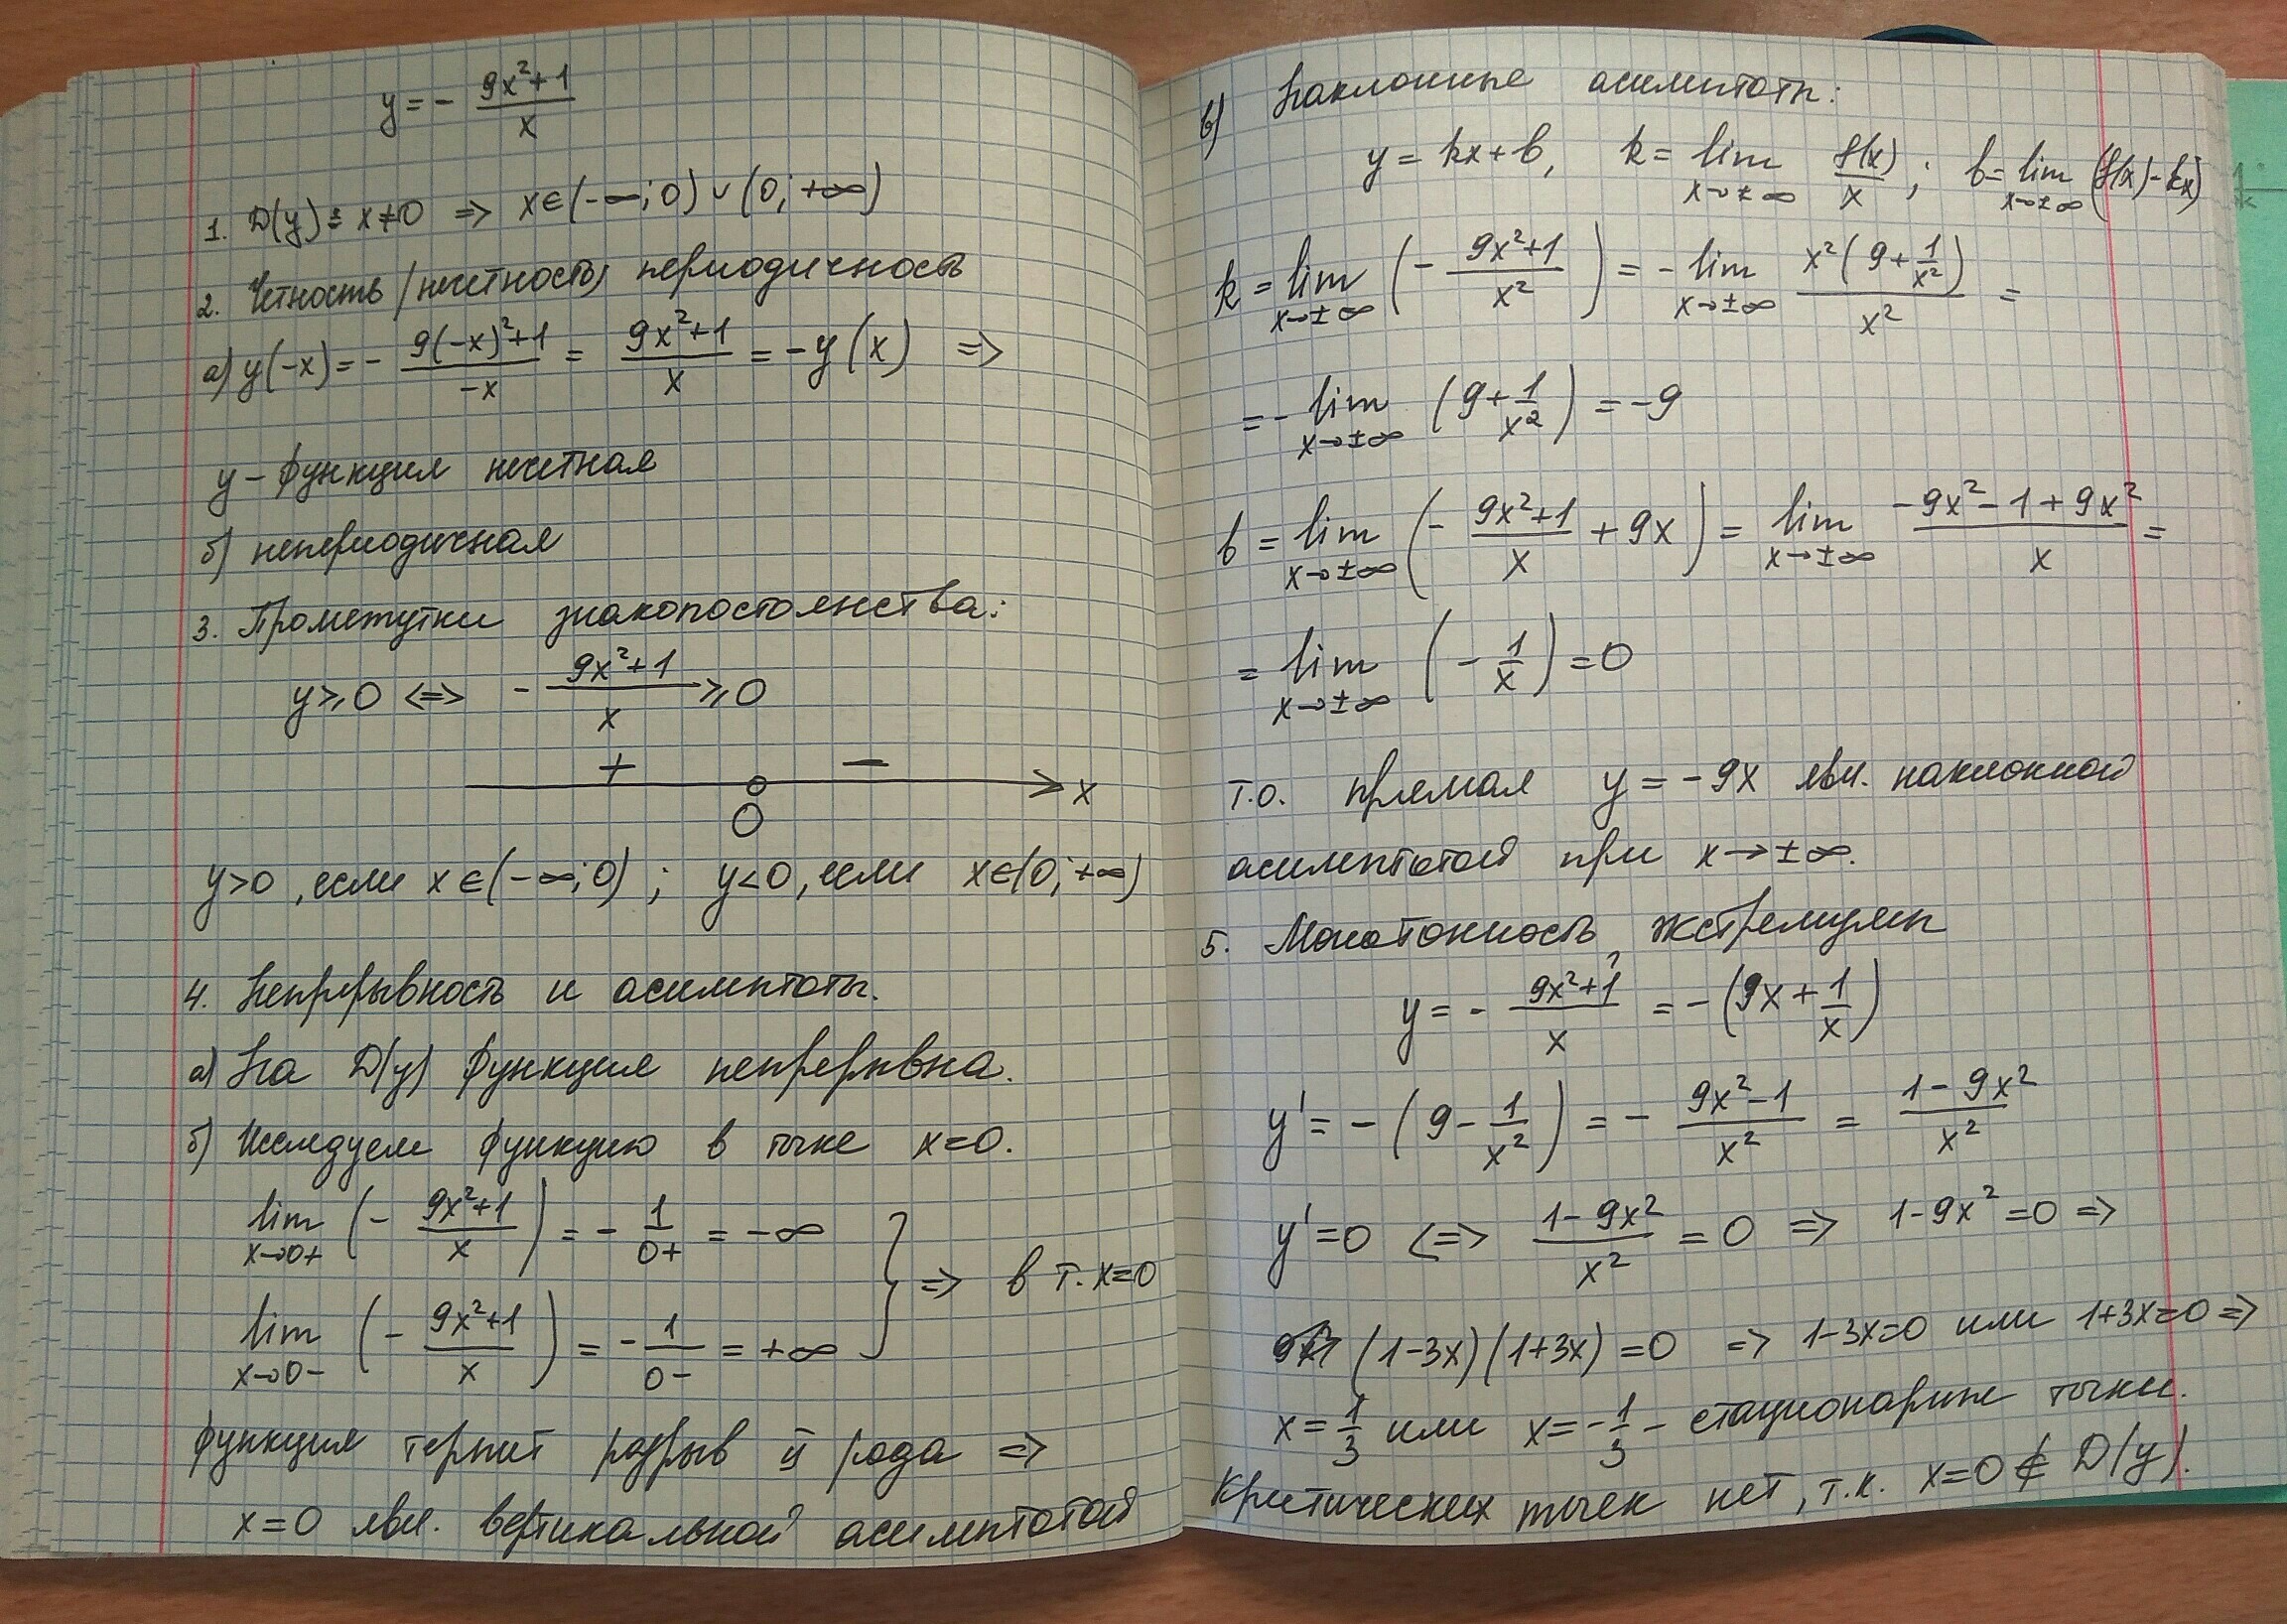 y = - (9x²+1)/x
1. D(y): x≠0 => x∈(-∞;0)∪(0;+∞)
2. Четность/нечетность, периодичность
а) y(-x) = - (9(-x)²+1)/(-x) = (9x²+1)/x = -y(x) =>
y - функция нечетная
б) непериодичная
3. Промежутки знакопостоянства:
y≥0 <=> - (9x²+1)/x ≥0
+ − x
0
y>0, если x∈(-∞;0); y<0, если x∈(0;+∞)
4. Непрерывность и асимптоты.
а) На D(y) функция непрерывна.
б) Исследуем функцию в точке x=0.
lim x→0+ (- (9x²+1)/x) = - 1/0+ = -∞
lim x→0- (- (9x²+1)/x) = - 1/0- = +∞ } => в т. x=0
функция терпит разрыв II рода =>
x=0 явл. вертикальной асимптотой
в) Наклонные асимптоты:
y = kx+b, k = lim x→±∞ f(x)/x; b = lim x→±∞ (f(x)-kx)
k = lim x→±∞ (- (9x²+1)/x²) = - lim x→±∞ x²(9+1/x²)/x² =
= - lim x→±∞ (9+1/x²) = -9
b = lim x→±∞ (- (9x²+1)/x + 9x) = lim x→±∞ (-9x²-1+9x²)/x =
= lim x→±∞ (- 1/x) = 0
Т.о. прямая y = -9x явл. наклонной
асимптотой при x→±∞.
5. Монотонность, экстремумы
y = - (9x²+1)/x = -(9x+1/x)
y' = -(9-1/x²) = - (9x²-1)/x² = (1-9x²)/x²
y'=0 <=> (1-9x²)/x² = 0 => 1-9x²=0 =>
(1-3x)(1+3x)=0 => 1-3x=0 или 1+3x=0 =>
x=1/3 или x=-1/3 - стационарные точки.
Критических точек нет, т.к. x=0 ∉ D(y).